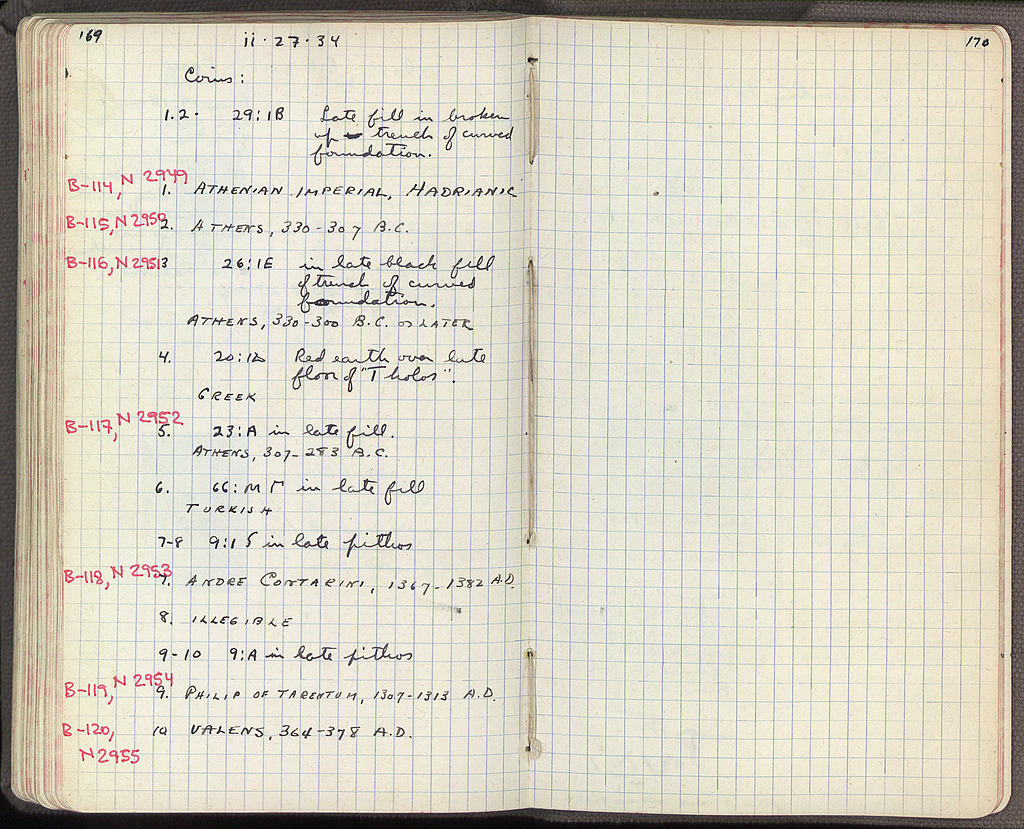 169
ii · 27 · 34
170
Coins:
1.2. 29:1B Late fill in broken
up trench of curved
foundation.
B-114, N 2949 1. ATHENIAN IMPERIAL, HADRIANIC
B-115, N 2950 2. ATHENS, 330-307 B.C.
B-116, N 2951 3 26:1E in late black fill
of trench of curved
foundation.
ATHENS, 330-300 B.C. or LATER
4. 20:1Δ Red earth over late
floor of "Tholos".
GREEK
B-117, N 2952 5. 23:A in late fill.
ATHENS, 307-283 B.C.
6. 66:ΜΓ in late fill
TURKISH
7-8 9:15 in late pithos
B-118, N 2953 7. ANDRE CONTARINI, 1367-1382 A.D.
8. ILLEGIBLE
9-10 9:A in late pithos
B-119, N 2954 9. PHILIP OF TARENTUM, 1307-1313 A.D.
B-120, 10 VALENS, 364-378 A.D.
N 2955